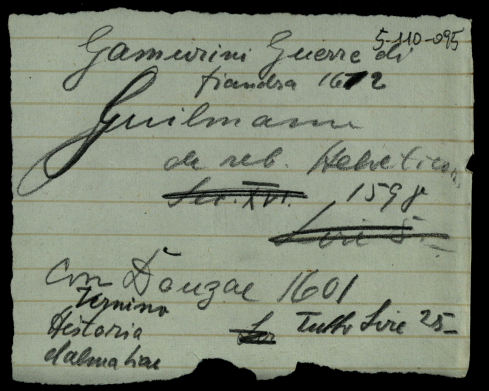 5-110-095
Gamurini Guerre di
fiandra 1672
Guilmann
de reb. Helvetior.
Sec. XVI. 1598
Lire 5-
Con Douzae 1601
Tutto Lire 25-
Historia
dalmatiae